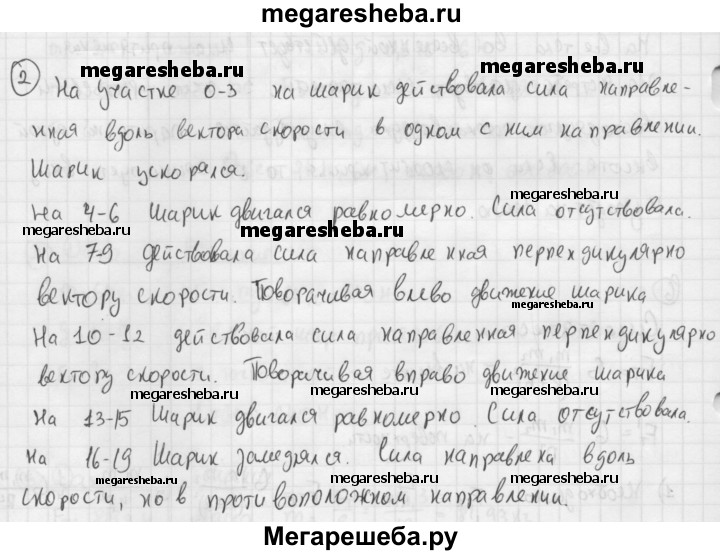 megaresheba.ru
megaresheba.ru
2 На участке 0-3 на шарик действовала сила направле-
нная вдоль вектора скорости в одном с ним направлении.
Шарик ускорялся.
megaresheba.ru
На 4-6 Шарик двигался равномерно. Сила отсутствовала.
megaresheba.ru megaresheba.ru
На 7-9 действовала сила направленная перпендикулярно
megaresheba.ru
вектору скорости. Поворачивая влево движение шарика
На 10-12 действовала сила направленная перпендикулярно
вектору скорости. Поворачивая вправо движение шарика
megaresheba.ru megaresheba.ru
На 13-15 Шарик двигался равномерно. Сила отсутствовала.
megaresheba.ru megaresheba.ru
На 16-19 Шарик замедлялся. Сила направлена вдоль
скорости, но в противоположном направлении.
Мегарешеба.ру